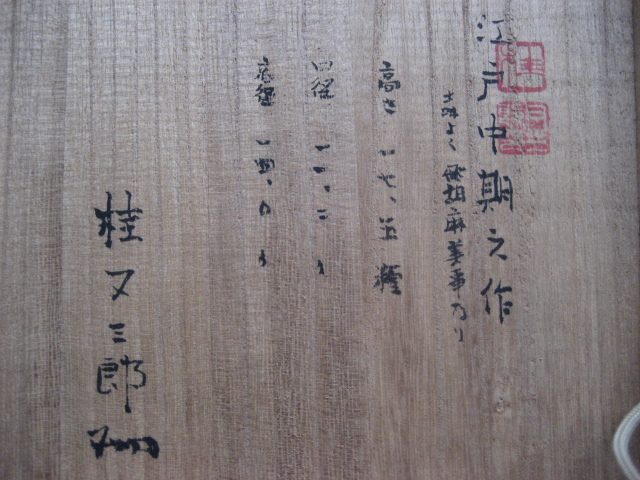 江戸中期之作
土味よく 胡麻美事なり
高さ 一七、五糎
口径 一一、二〃
底径 一四、〇〃
桂又三郎